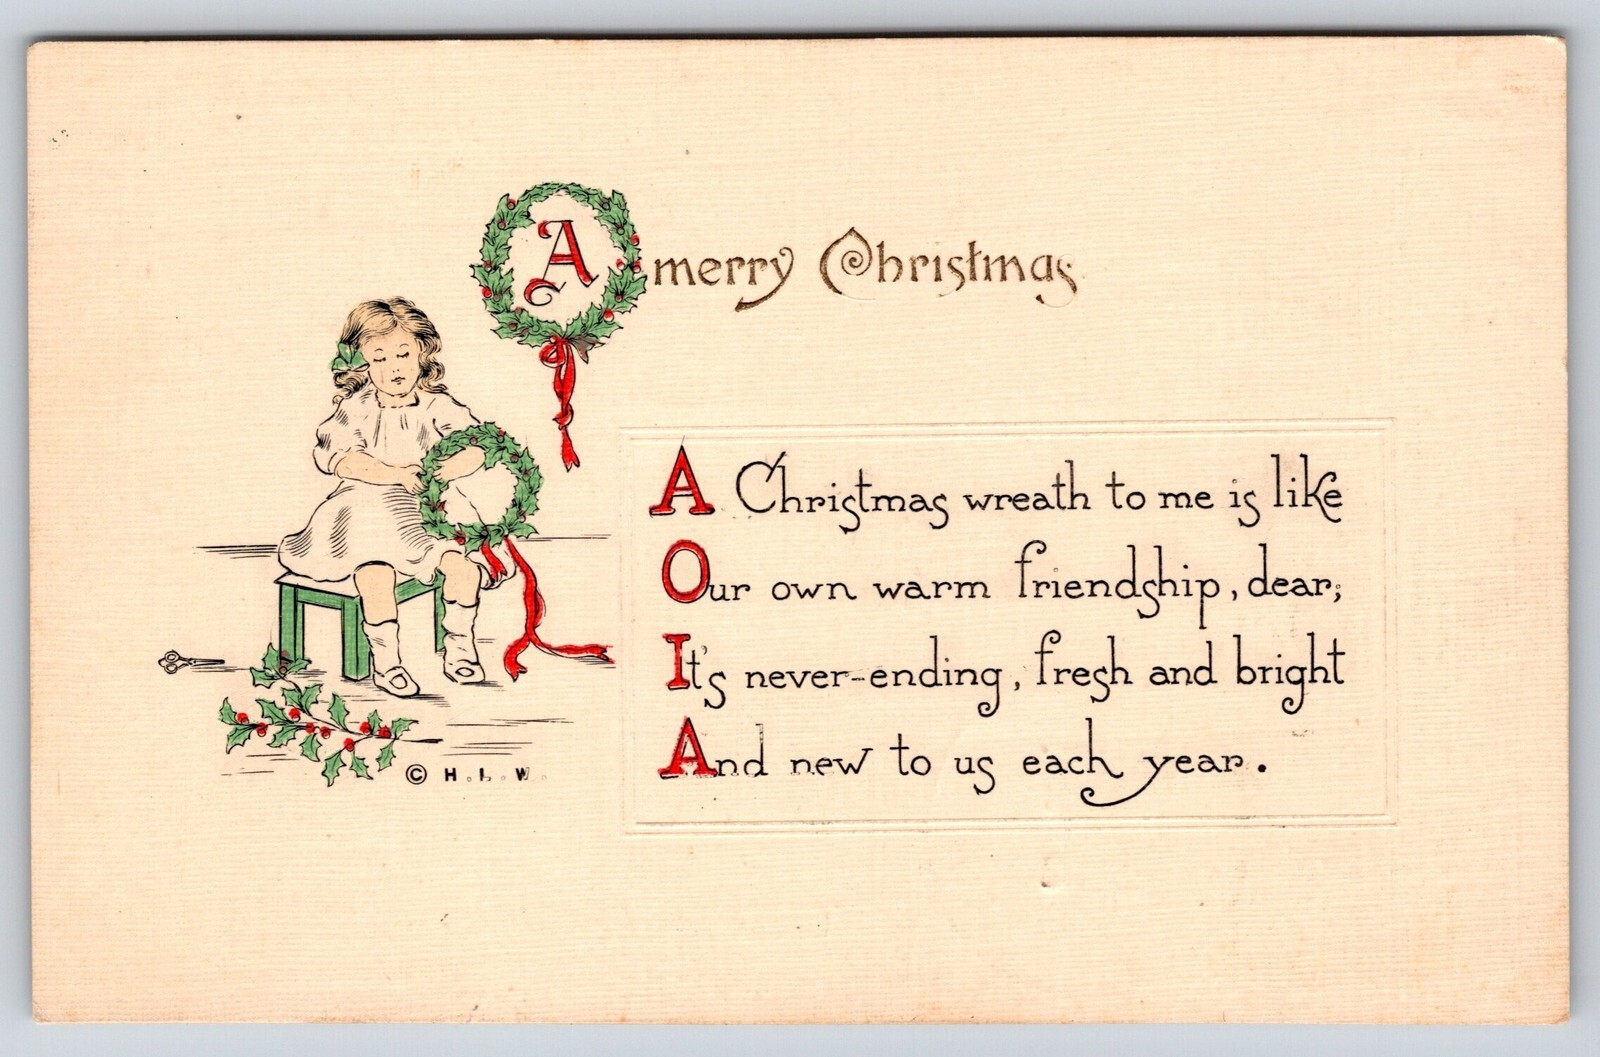 A merry Christmas
A Christmas wreath to me is like
Our own warm friendship, dear;
It's never-ending, fresh and bright
And new to us each year.
© H. L. W.